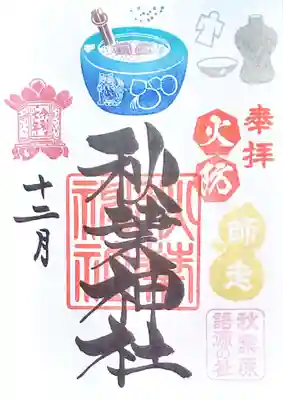 奉拝
火防
師走
秋葉原
語源の社
秋葉神社
十二月